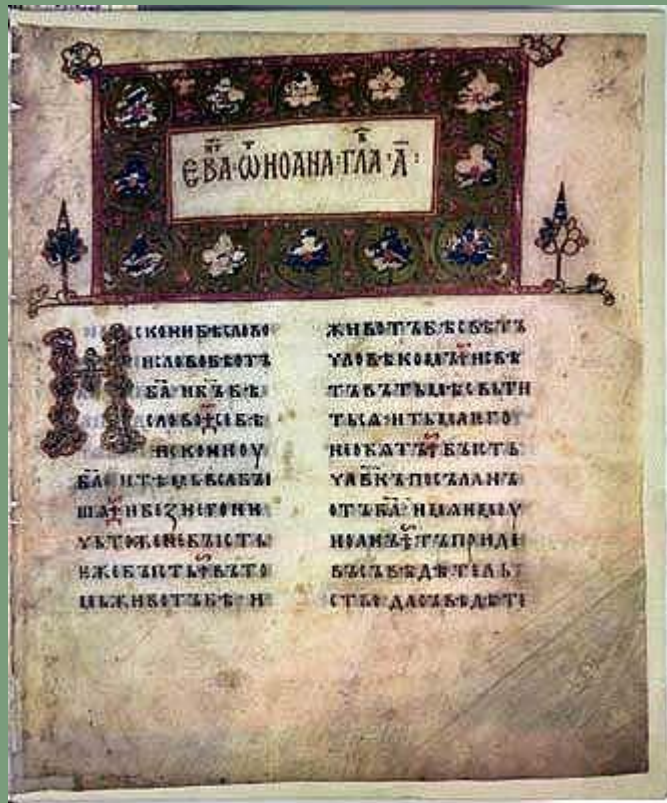 ЄВА҃ · Ѿ ИОАНА · ГЛА · А҃ ·
ИСКОНИ БѢ СЛОВО
И СЛОВО БѢ ОТЪ
БА҃ И БЪ҃ БѢ
СЛОВО · СЕ БѢ
ИСКОНИ ОУ
БА҃ И ТѢМЬ ВЬСꙖ БЫ
ШѦ · И БЕЗ НЕГО НИ
ЧЬТОЖЕ НЕ БЫСТЬ
ѤЖЕ БЫСТЬ · ВЪ ТО
МЬ ЖИВОТЪ БѢ И
ЖИВОТЪ БѢ СВѢТЪ
ЧЛОВѢКОМЪ · И СВѢ
ТЪ ВЪ ТЬМѢ СВЬТИ
ТЬСѦ · И ТЬМА ѤГО
НЕ ОБѦТЪ · БЫСТЬ
ЧЛВ҃КЪ ПОСЪЛАНЪ
ОТЪ БА҃ ИМѦ ѤМОУ
ИОАНЪ · ТЪ ПРИДЕ
ВЪ СЪВѢДѢТЕЛЬ
СТВО · ДА СЪВѢДѢТЕ